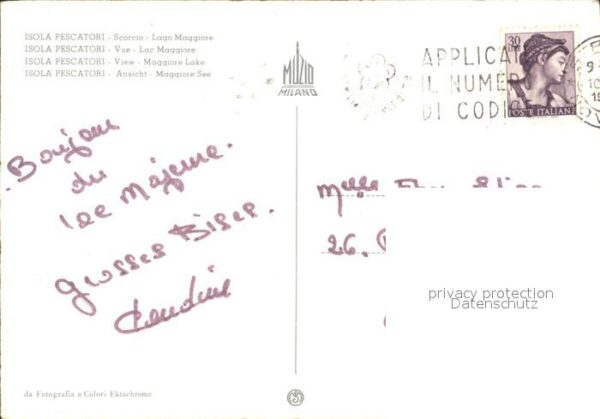 ISOLA PESCATORI - Scorcio - Lago Maggiore
ISOLA PESCATORI - Vue - Lac Maggiore
ISOLA PESCATORI - View - Maggiore Lake
ISOLA PESCATORI - Ansicht - Maggiore See
MUZIO
MILANO
30
LIRE
POSTE ITALIANE
APPLICA
IL NUMER
DI CODIC
Bonjour
du
lac Majeur.
Grosses Bises.
Melle
26.
privacy protection
Datenschutz
da Fotografia a Colori Ektachrome